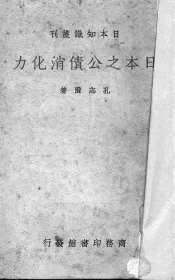 日本知識叢刊
日本之公債消化力
孔志澄著
商務印書館發行